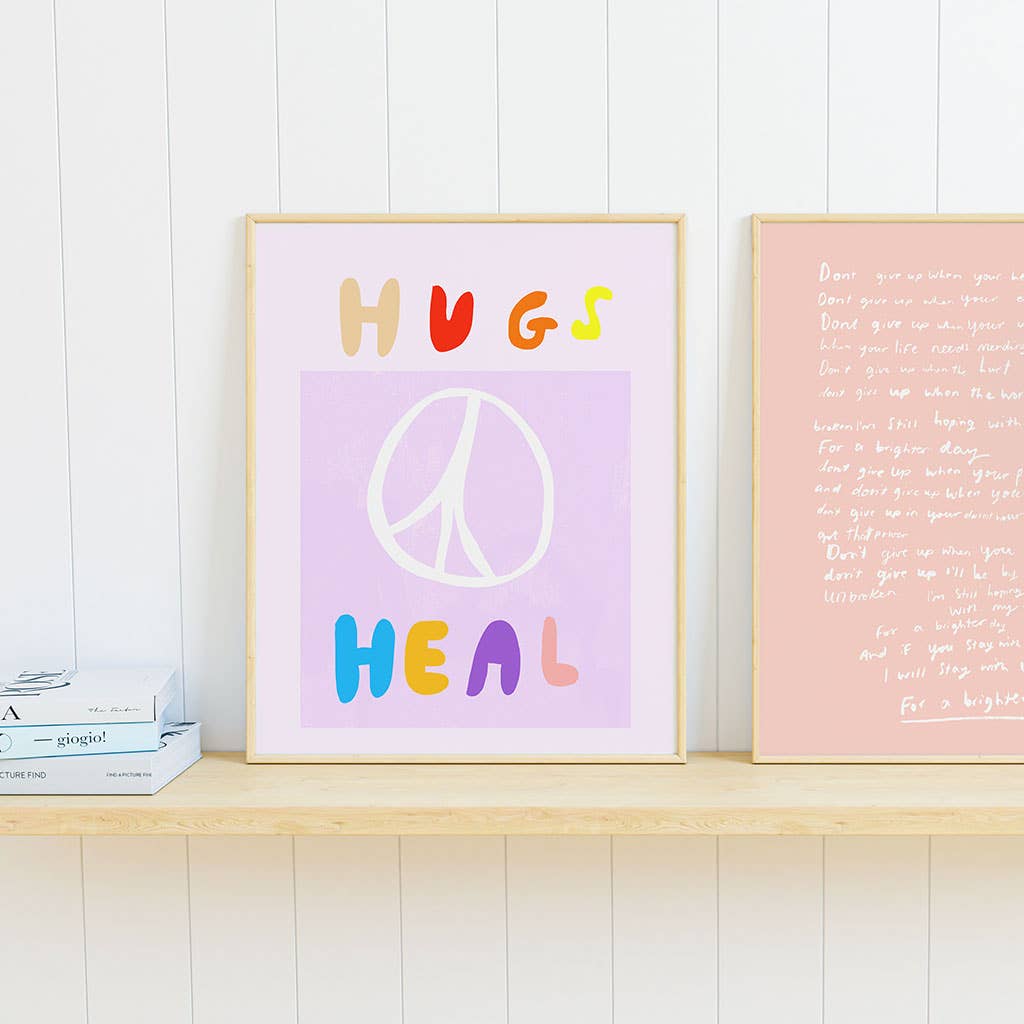 HUGS
HEAL
Dont give up when your
Dont give up when your
Dont give up when your
When your life needs mending
Don't give up when the hurt
dont give up when the
broken I'm still hoping with
For a brighter day
dont give up when your
and don't give up when
dont give up in your darkest hour
got that power
Don't give up when you
don't give up I'll be by
Unbroken I'm still hoping
with my
For a brighter day
And if you stay with
I will stay with
For a brighter
A
— giogio!
CTURE FIND
FIND A PICTURE